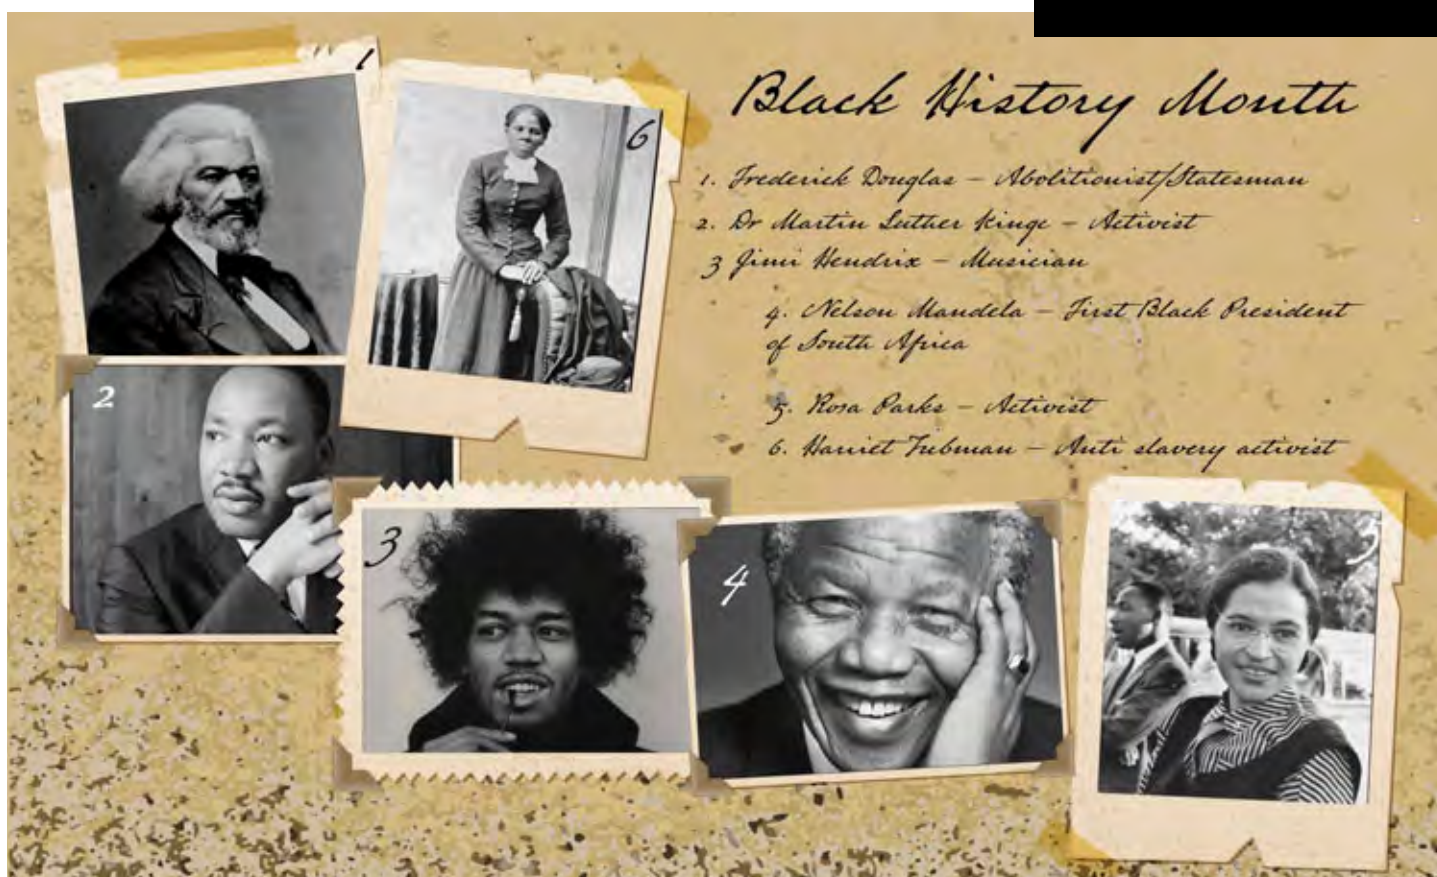 Black History Month
1. Frederick Douglas – Abolitionist/Statesman
2. Dr Martin Luther Kinge – Activist
3 Jimi Hendrix – Musician
4. Nelson Mandela – First Black President
of South Africa
5. Rosa Parks – Activist
6. Harriet Tubman – Anti slavery activist
1
6
2
3
4
5